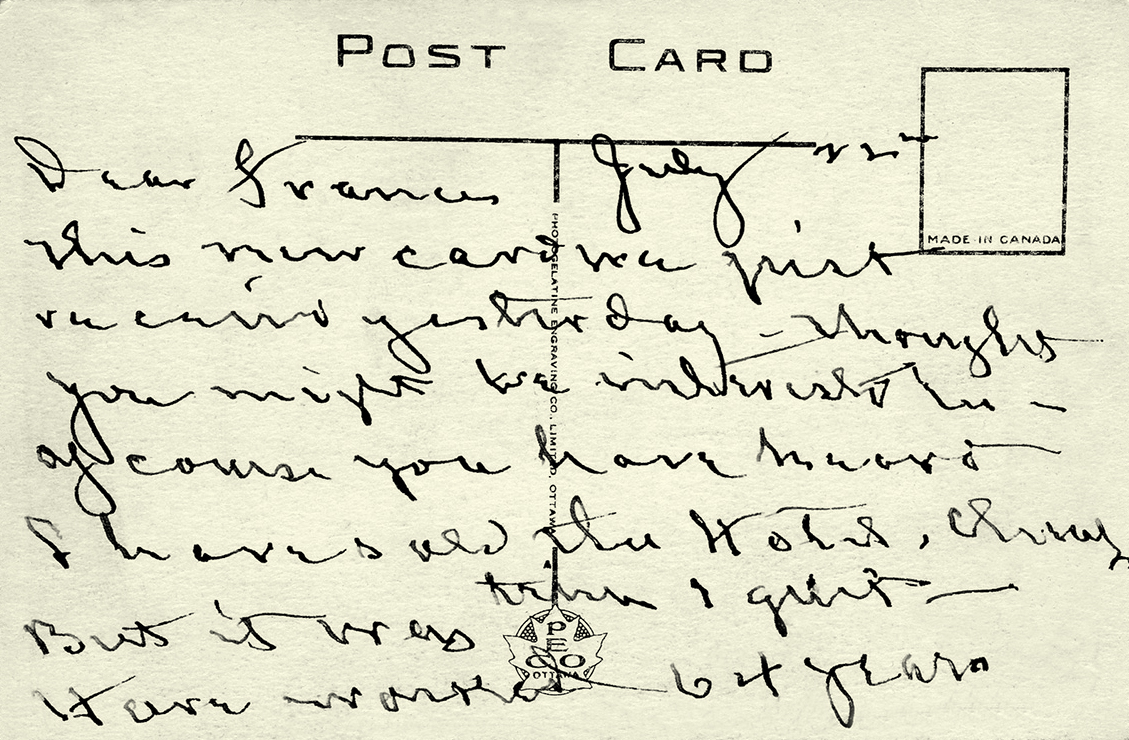 POST CARD
MADE IN CANADA
Dear Frances July 22nd
this new card we just
received yesterday - thought
you might be interested in -
of course you have heard
I have sold the Hotel,
But it was time I quit -
Have worked 64 years
PHOTOGELATINE ENGRAVING CO., LIMITED, OTTAWA
PECO
OTTAWA